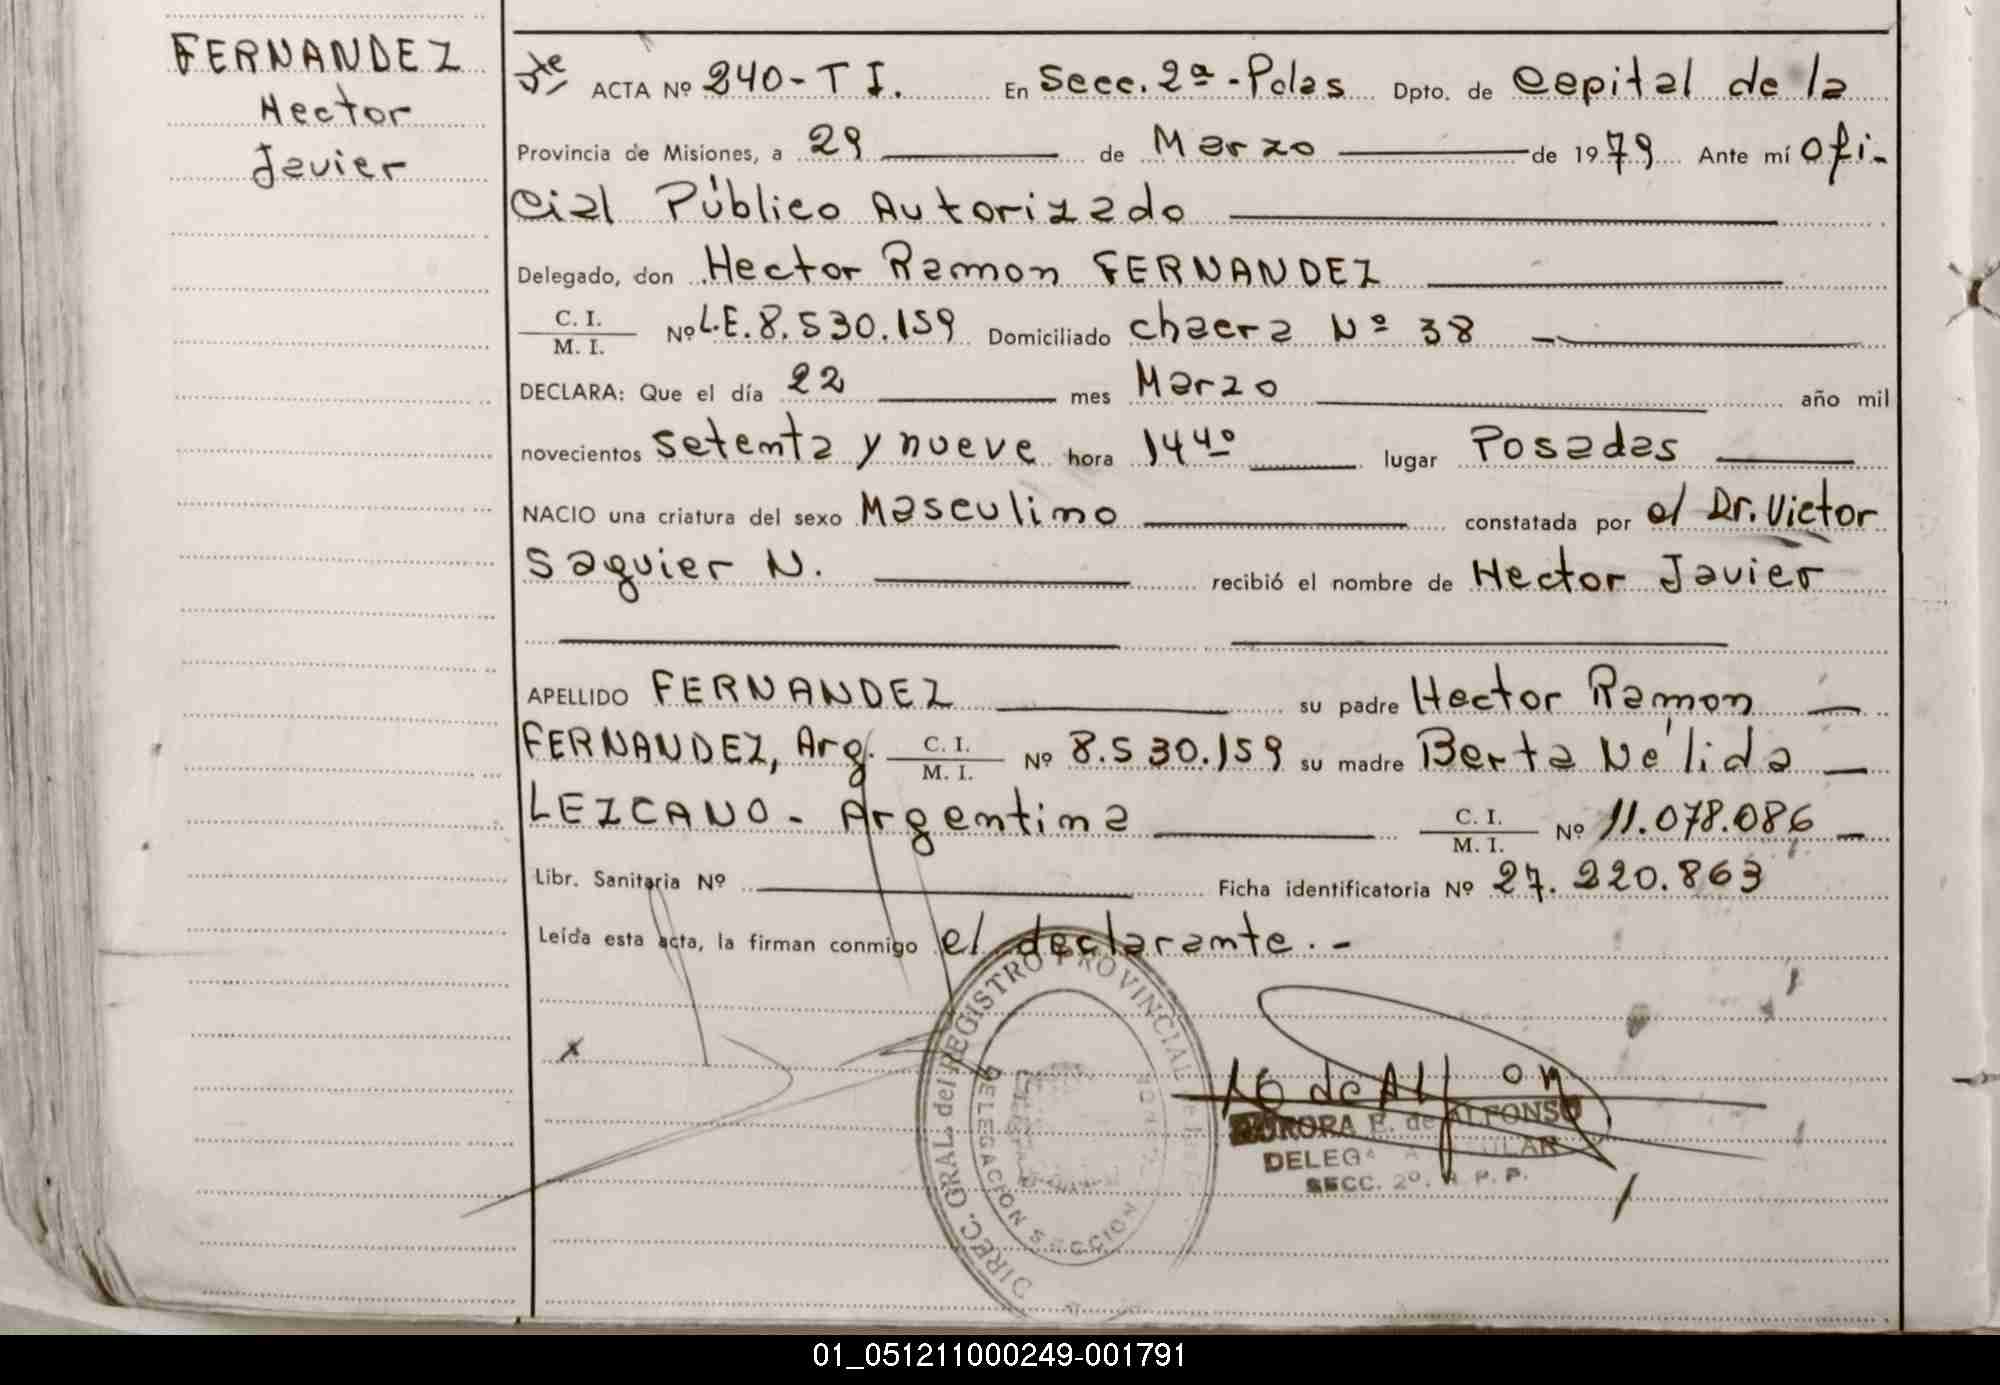 FERNANDEZ
Hector
Javier
ACTA Nº 240-T I. En Secc. 2ª-Pdas Dpto. de Capital de la
Provincia de Misiones, a 29 de Marzo de 1979 Ante mí Ofi-
cial Público Autorizado
Delegado, don Hector Ramon FERNANDEZ
C. I.
M. I. Nº L.E. 8.530.159 Domiciliado chacra Nº 38
DECLARA: Que el día 22 mes Marzo año mil
novecientos setenta y nueve hora 14⁴⁰ lugar Posadas
NACIO una criatura del sexo Masculino constatada por el Dr. Victor
Saguier N. recibió el nombre de Hector Javier
APELLIDO FERNANDEZ su padre Hector Ramon
FERNANDEZ, Arg. C. I.
M. I. Nº 8.530.159 su madre Berta Nélida
LEZCANO - Argentina C. I.
M. I. Nº 11.078.086
Libr. Sanitaria Nº Ficha identificatoria Nº 27.220.863
Leída esta acta, la firman conmigo el declarante.-
x
DIREC. GRAL. del REGISTRO PROVINCIAL
DELEGACION SECCION
AURORA E. de ALFONSO
SECC. 2º. R. P. P.
01_051211000249-001791